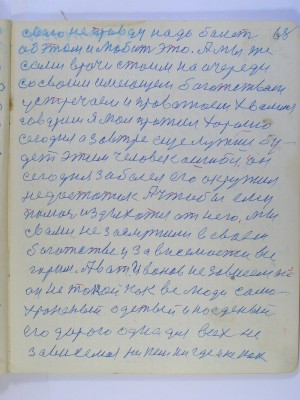 свою неправду надо болеть 68
об этом и любит это. А мы же
сами врачи стоим на очереди
со своим имеющем богатством
устречаем и провожаем хвалимся
говорим я мол прожил хорошо
сегодня а завтре еще лучши бу-
дет этим человек ошибся он
сегодня заболел его окружил
недостаток А чтобы ему
помоч издыхотся от него, мы
с вами не заслужили в своем
богатстве и зависимости вы
горим. А вот Иванов не зависем ни
он не такой как все люди само-
хранный одетый и поеденый
его дорога одна для всех не
зависемая ни пищи ни где як